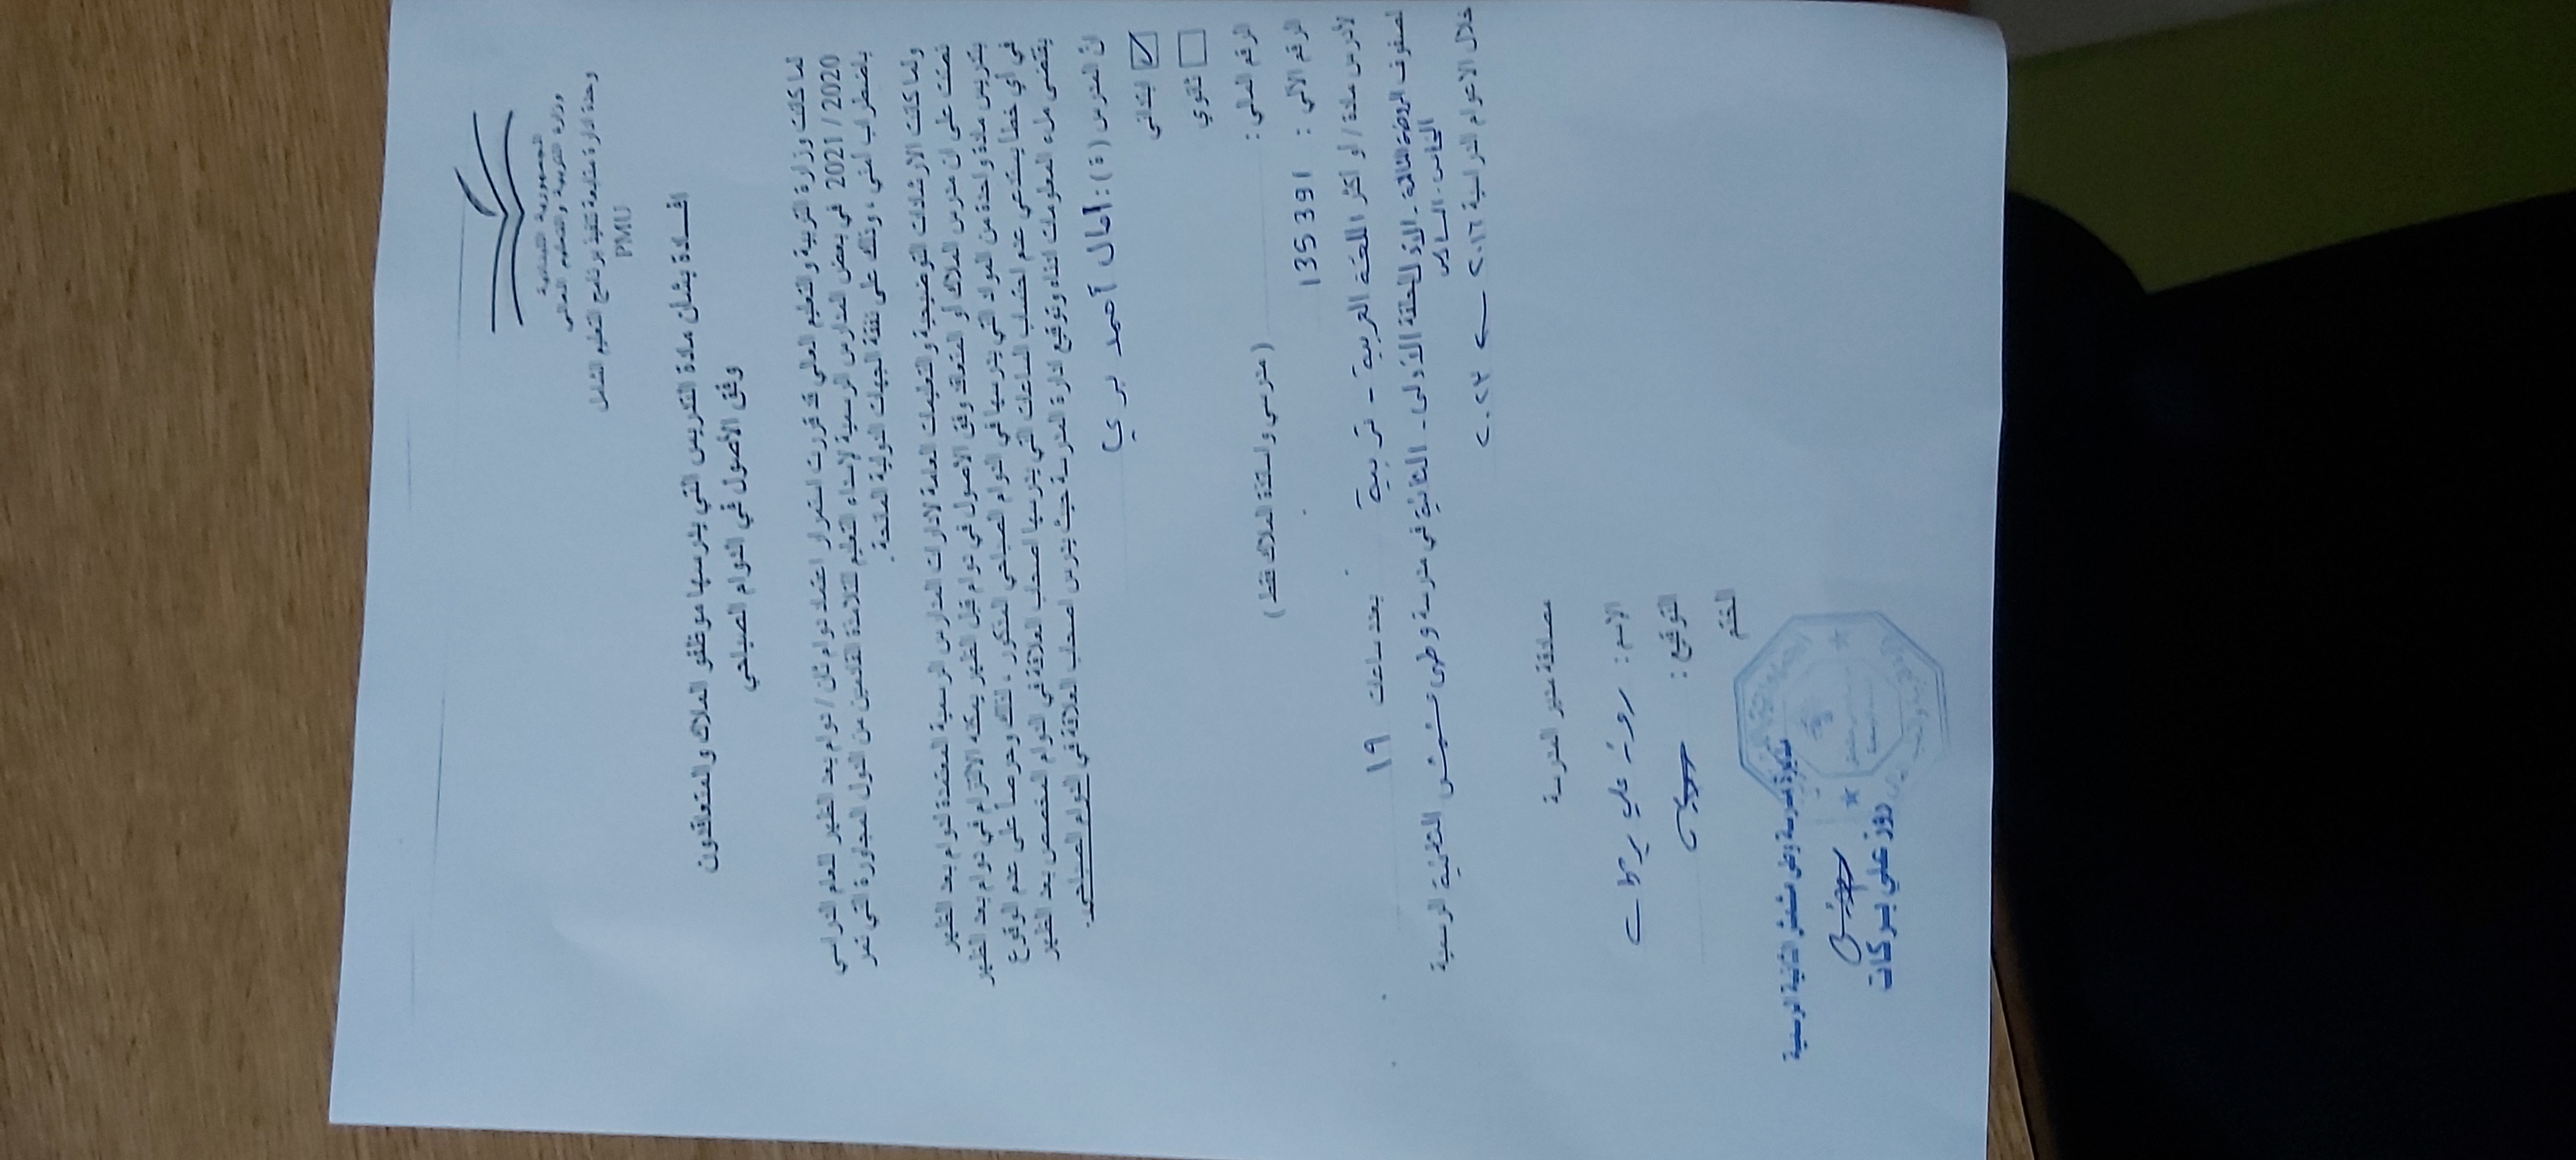 الجمهورية اللبنانية
وزارة التربية والتعليم العالي
وحدة ادارة متابعة تنفيذ برنامج التعليم الشامل
PMU
إفـــادة بشأن مادة التدريس التي يدرسها موظفو الملاك والمتعاقدون
وفق الأصول في الدوام الصباحي
لما كانت وزارة التربية والتعليم العالي قد قررت استمرار اعتماد دوام ثان / دوام بعد الظهر للعام الدراسي
2020 / 2021 في بعض المدارس الرسمية لإسداء التعليم للتلامذة القادمين من الدول المجاورة التي تمر
باضطراب أمني ، وذلك على نفقة الجهات الدولية المانحة.
ولما كانت الارشادات التوضيحية والتعليمات العامة لادارات المدارس الرسمية المعتمدة لدوام بعد الظهر
نصت على ان مدرس الملاك أو المتعاقد وفق الاصول في دوام قبل الظهر يمكنه الالتزام في دوام بعد الظهر
بتدريس مادة واحدة من المواد التي يدرسها في الدوام الصباحي المذكور ، لذلك وحرصاً على عدم الوقوع
في أي خطأ يستدعي عدم احتساب الساعات التي يدرسها اصحاب العلاقة في الدوام المخصص بعد الظهر
يقتضي ملء المعلومات ادناه وتوقيع ادارة المدرسة حيث يدرس اصحاب العلاقة في الدوام الصباحي.
انّ المدرس (ة) : آمال أحمد بري
ابتدائي ☑
ثانوي ☐
الرقم المالي : ( مدرسي واساتذة الملاك فقط )
الرقم الآلي : 135391
لأدرس مادة / او أكثر اللغة العربية - تربية بعدد ساعات ١٩
لصفوف الروضة الثالثة - الأول للحلقة الأولى - الثانية في مدرسة وطى مشمش الثانية الرسمية
الخامس - السادس
خلال الاعوام الدراسية ٢٠١٦ ← ٢٠٢٣
مصادقة مدير المدرسة
الإسم : روز علي بركات
التوقيع :
الختم
مديرة مدرسة وطى مشمش الثانية الرسمية
روز علي بركات